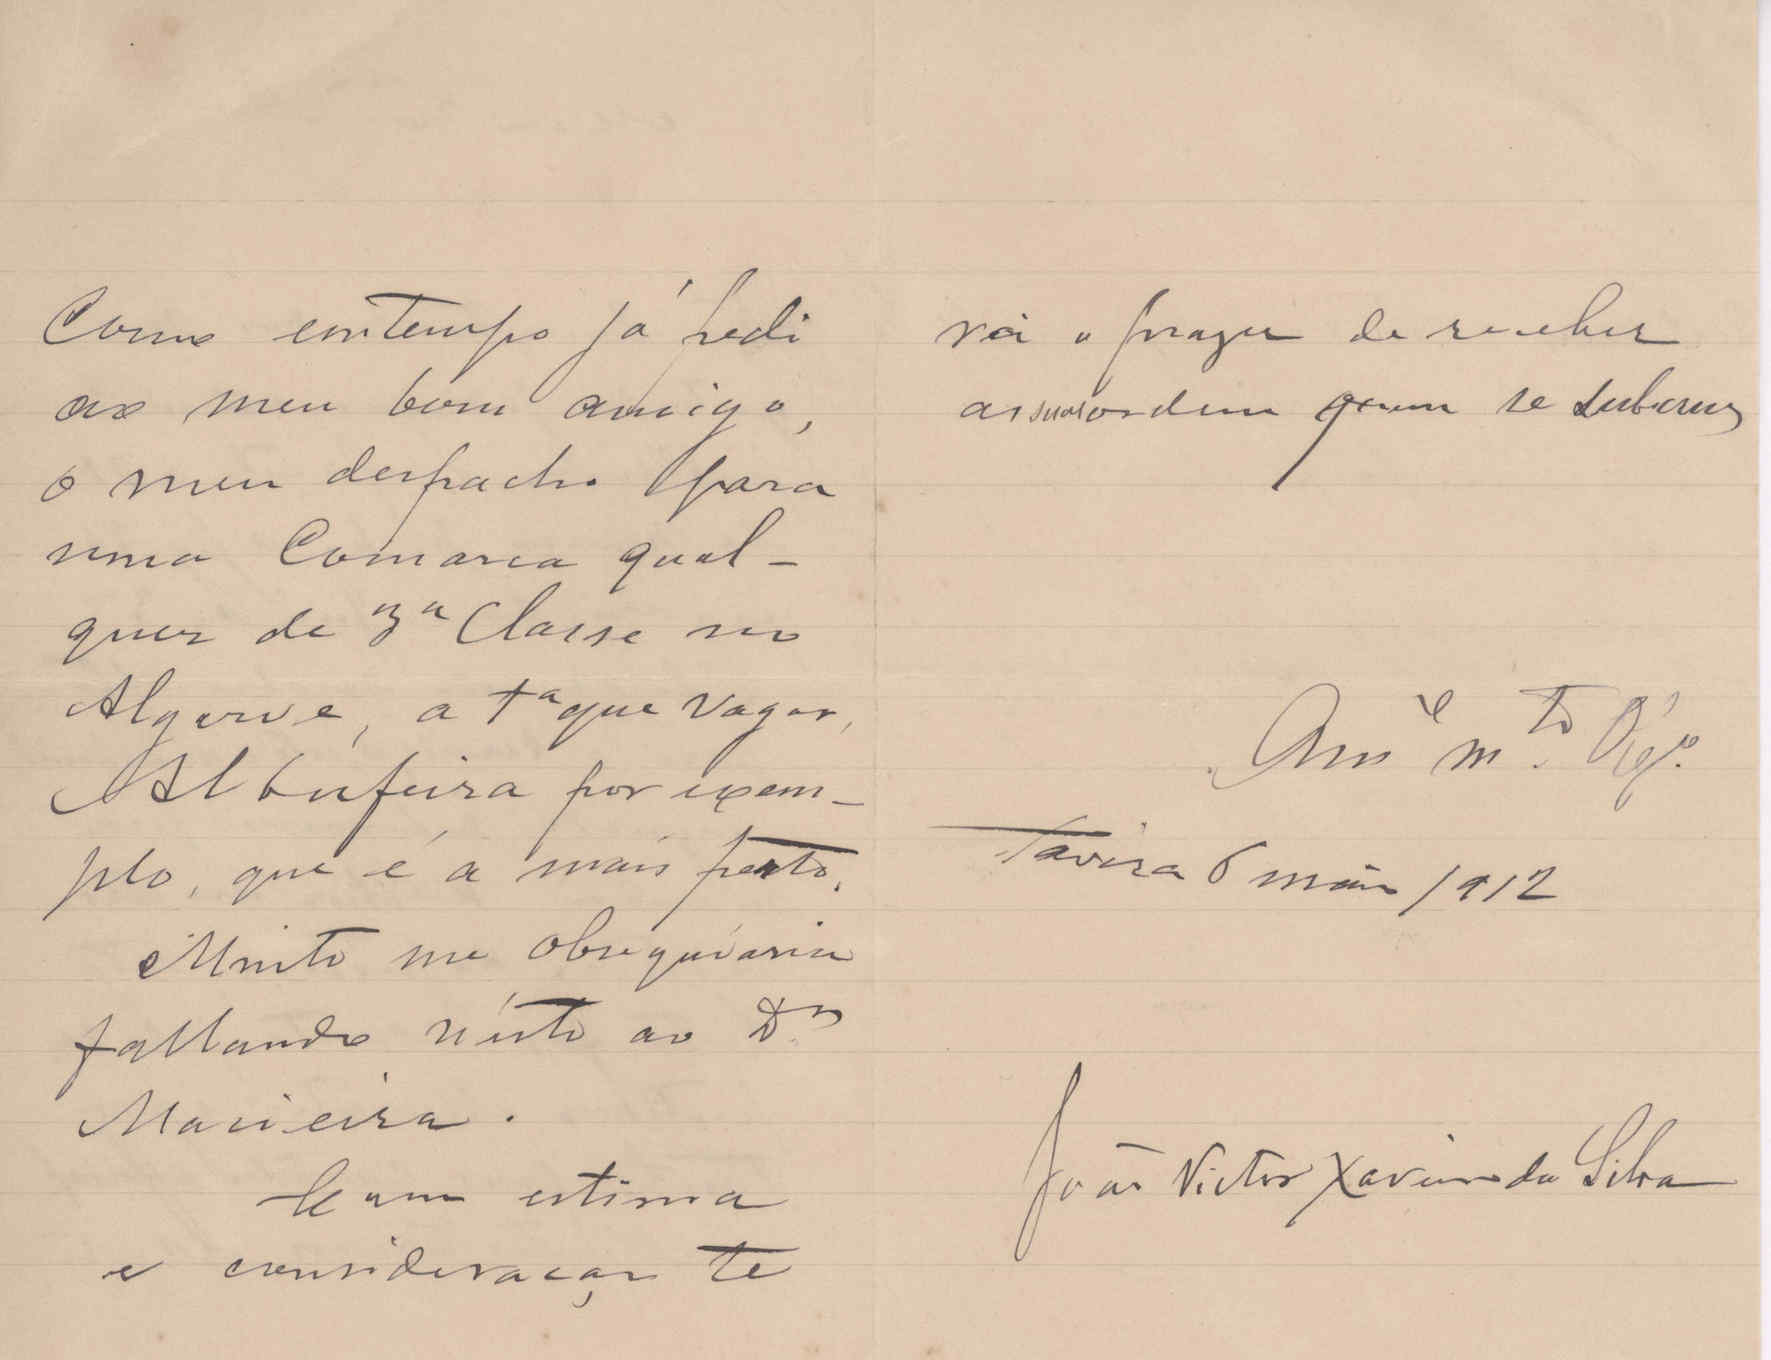 Como em tempo já pedi
ao meu bom amigo,
o meu despacho para
uma Comarca qual-
quer de 3ª Classe no
Algarve, a 1ª que vagar,
Albufeira por exem-
plo, que é a mais perto.
Muito me obsequiaria
fallando n'isto ao Dr.
Macieira.
Com estima
e consideração te
rá o prazer de receber
as suas ordens quem se subscreve
Amº e mto Obgº
Tavira 6 maio 1912
João Victor Xavier da Silva